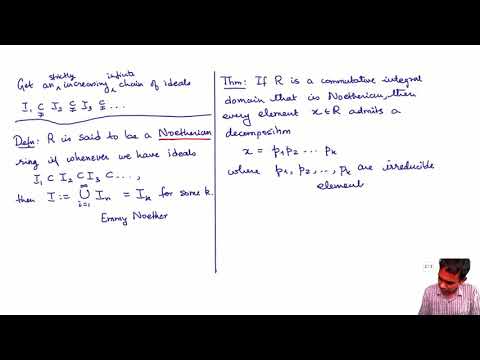 strictly infinite
Get an increasing chain of ideals
I₁ ⊊ I₂ ⊊ I₃ ⊊ ...
Defn: R is said to be a Noetherian
ring if whenever we have ideals
I₁ ⊂ I₂ ⊂ I₃ ⊂ ...,
then I := ∞∪i=1 Iₙ = Iₖ for some k.
Emmy Noether
Thm: If R is a commutative integral
domain that is Noetherian, then
every element x ∈ R admits a
decomposition
x = p₁p₂ ... pₖ
where p₁, p₂, ..., pₖ are irreducible
element